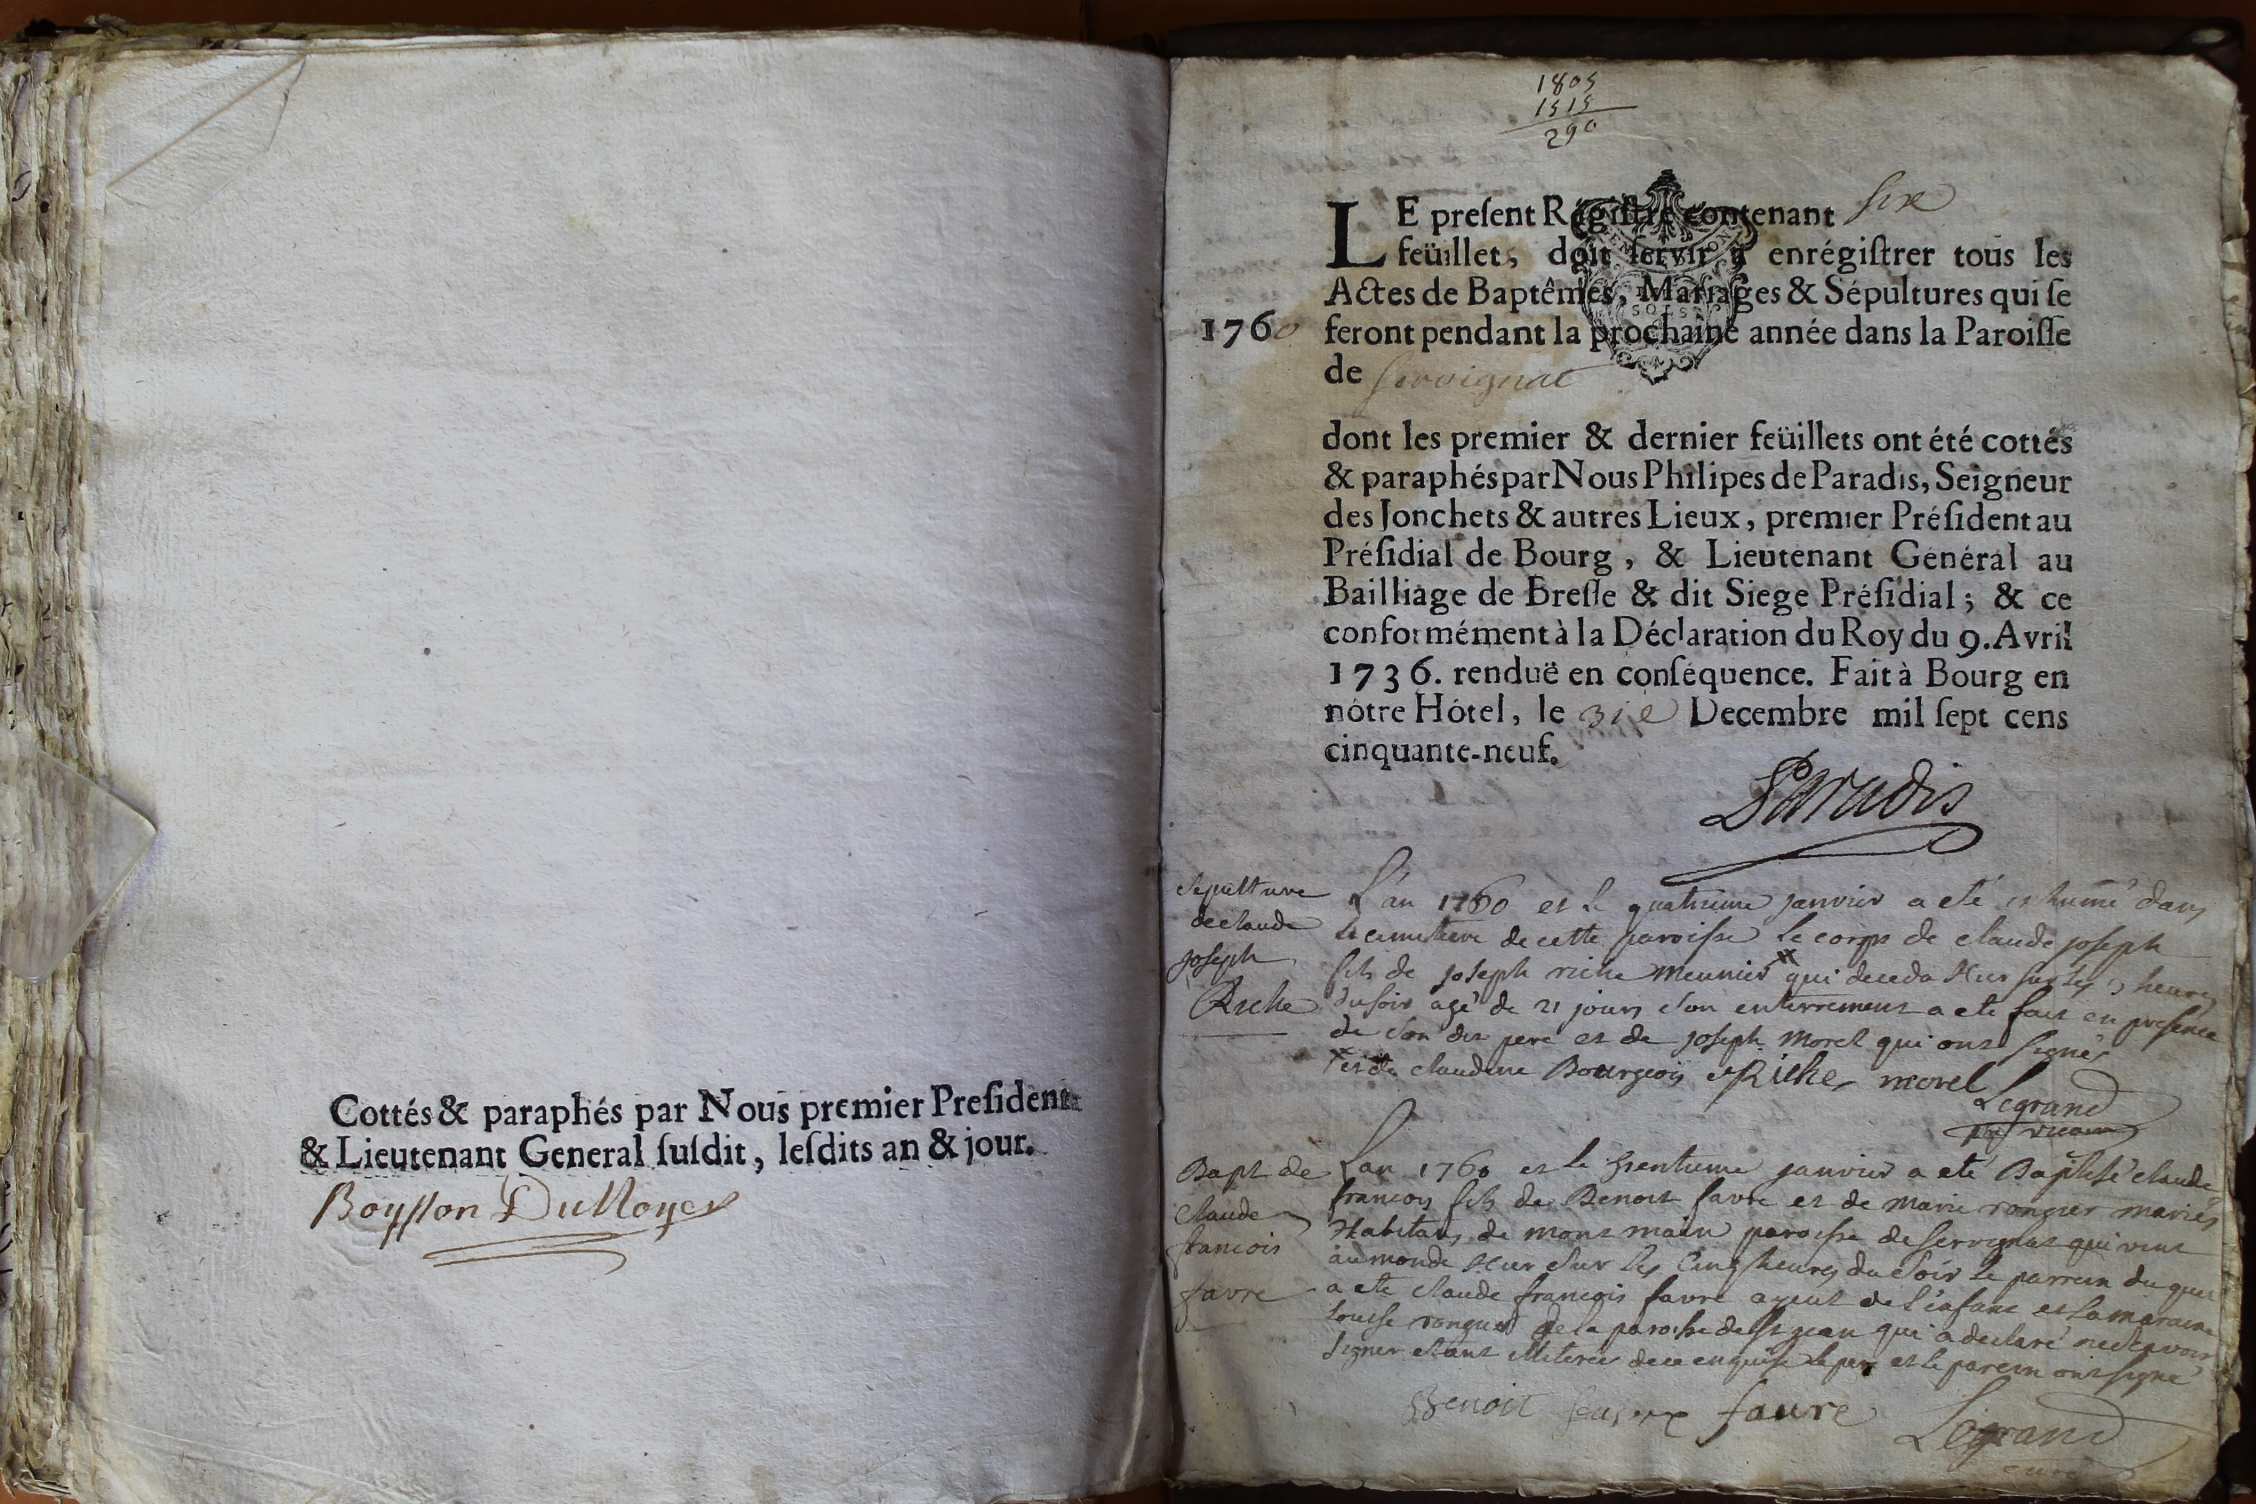 Cottés & paraphés par Nous premier Preſident
& Lieutenant General ſuſdit, leſdits an & jour.
Boysson DuNoyer
1805
1515
290
LE preſent Régiſtre contenant six
feüillets, doit ſervir à enrégiſtrer tous les
Actes de Baptêmes, Mariages & Sépultures qui ſe
1760 feront pendant la prochaine année dans la Paroiſſe
de servignat
dont les premier & dernier feüillets ont été cottés
& paraphés par Nous Philipes de Paradis, Seigneur
des Jonchets & autres Lieux, premier Préſident au
Préſidial de Bourg, & Lieutenant Général au
Bailliage de Breſſe & dit Siege Préſidial; & ce
conformément à la Déclaration du Roy du 9. Avril
1736. renduë en conſéquence. Fait à Bourg en
nôtre Hôtel, le 31e Decembre mil ſept cens
cinquante-neuf.
Paradis
Sepulture
de claude
joseph
Riche
L'an 1760 et le quatrieme janvier a eté inhumé dans
le cimetiere de cette paroisse le corps de claude joseph
fils de joseph riche meunier qui deceda hier sur les heures
du soir agé de 21 jours son enterrement a eté fait en presence
de son dit pere et de joseph morel qui ont signés
x et de claudine Bourgeois Riche morel
Legrand
vicaire
Bapt de
claude
francois
favre
L'an 1760 et le trentieme janvier a eté Baptisé claude
francois fils de Benoit favre et de marie ronguet mariés
habitans de mont main paroisse de servignat qui vint
au monde hier sur les cinq heures du soir le parrein du quel
a eté claude francois favre ayeul de l'enfant et la maraine
ronguet de la paroisse de st jean qui a declaré ne scavoir
signer etant de ce enquise le pere et le parein ont signé
Benoit favre
Legrand
curé